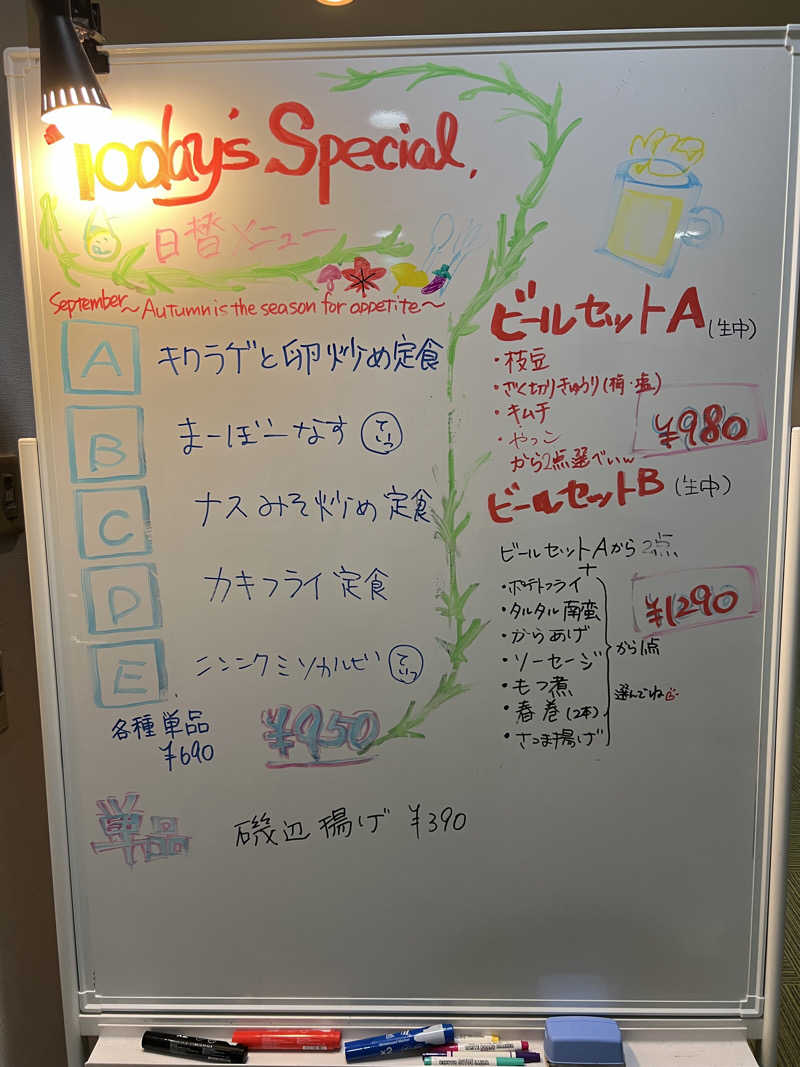 Today's Special.
日替メニュー
September～Autumn is the season for appetite～
A キクラゲと卵炒め定食
B まーぼーなす
C ナスみそ炒め定食
D カキフライ定食
E ニンニクミソカルビ
各種単品
¥690
¥950
単品 磯辺揚げ ¥390
ビールセットA(生中)
・枝豆
・ざく切りきゅうり(梅・塩)
・キムチ
・やっこ
から2点選べぃw
¥980
ビールセットB (生中)
ビールセットAから2点
+
・ポテトフライ
・タルタル南蛮
・からあげ
・ソーセージ
・もつ煮
・春巻(2本)
・さつま揚げ
から1点
選んでね
¥1290